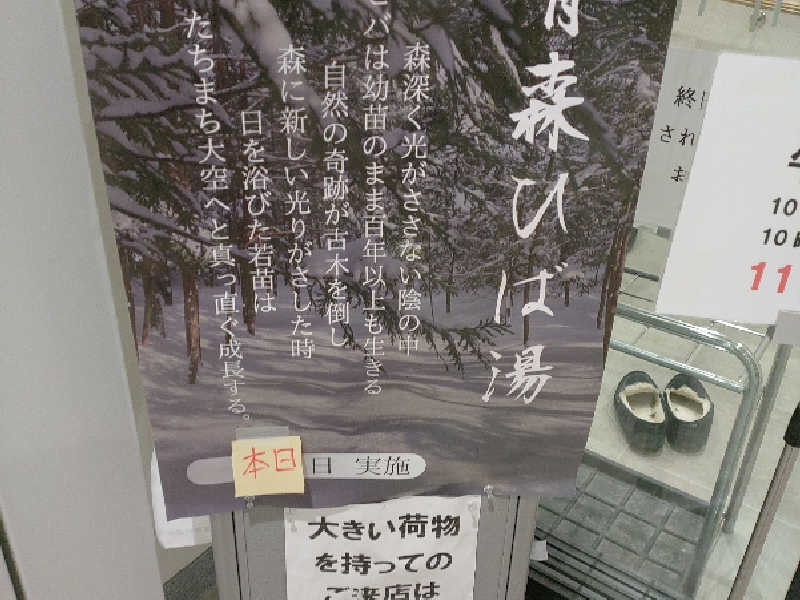 青森ひば湯
森深く光がささない陰の中
ヒバは幼苗のまま百年以上も生きる
自然の奇跡が古木を倒し
森に新しい光りがさした時
日を浴びた若苗は
たちまち大空へと真っ直ぐ成長する。
本日
日 実施
大きい荷物
を持っての
ご来店は
終
され
ま
10
10
11